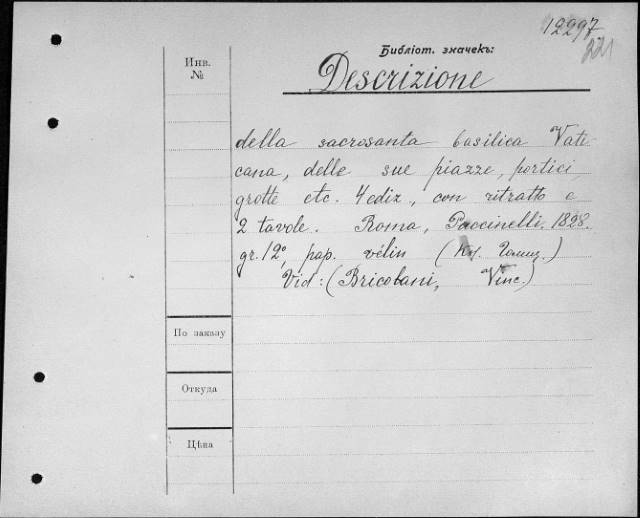 12297
221
Библіот. значекъ:
Инв.
№
Descrizione
della sacrosanta basilica Vati
cana, delle sue piazze, portici,
grotte etc. 4 ediz., con ritratto e
2 tavole. Roma, Puccinelli. 1828.
gr. 12°, pap. vélin (Кн.
Vid: (Bricolani, Vinc.)
По заказу
Откуда
Цѣна